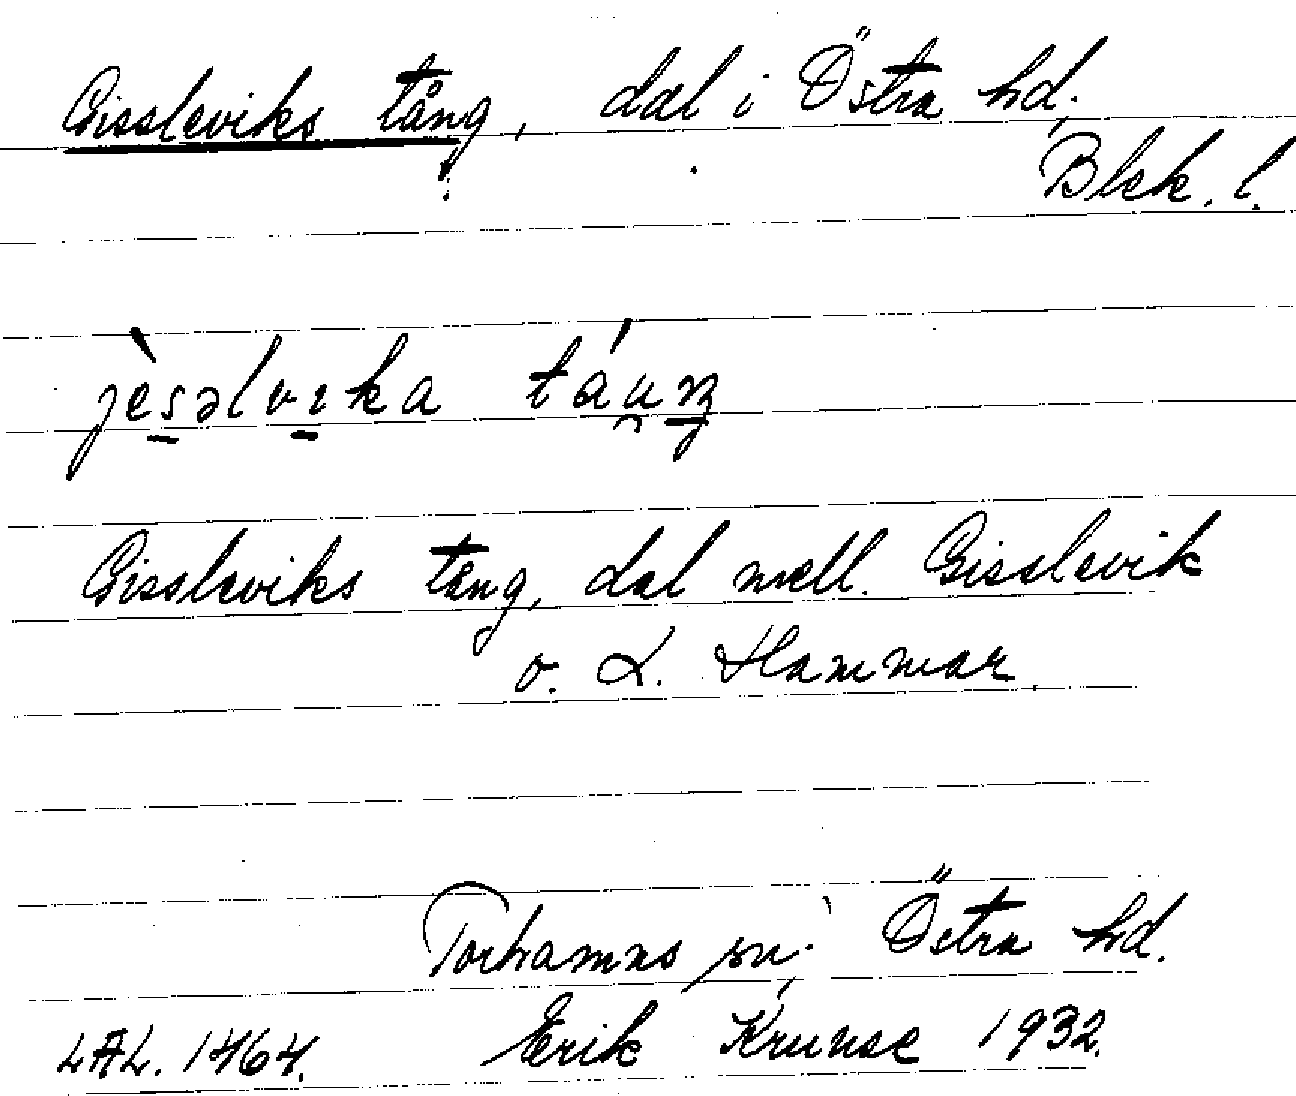 Gissleviks tång, dal i Östra hd.
Blek. l.
jèsəlvıka táu̯ŋ
Gissleviks tång, dal mell. Gisslevik
o. L. Hammar
Torhamns sn. Östra hd.
LAL. 1464. Erik Kruuse 1932.